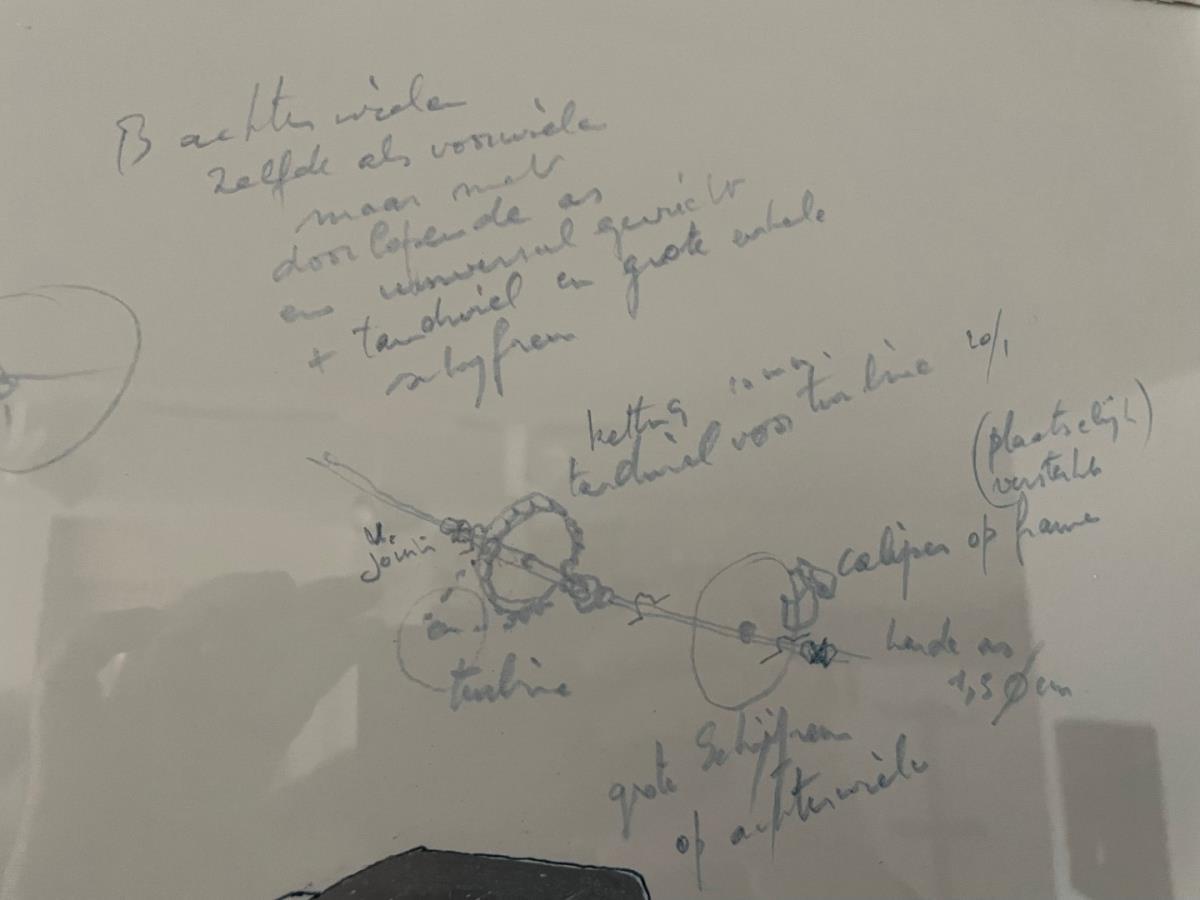 B achterwielen
zelfde als voorwielen
maar met
doorlopende as
en universal gewricht
+ tandwiel en grote enkele
schyfrem
ketting
tandwiel voor turbine 20/1
(plaatselijk)
u.
joint
caliper op frame
en
turbine
harde as
1,5 Ø cm
grote Schijfrem
op achterwielen